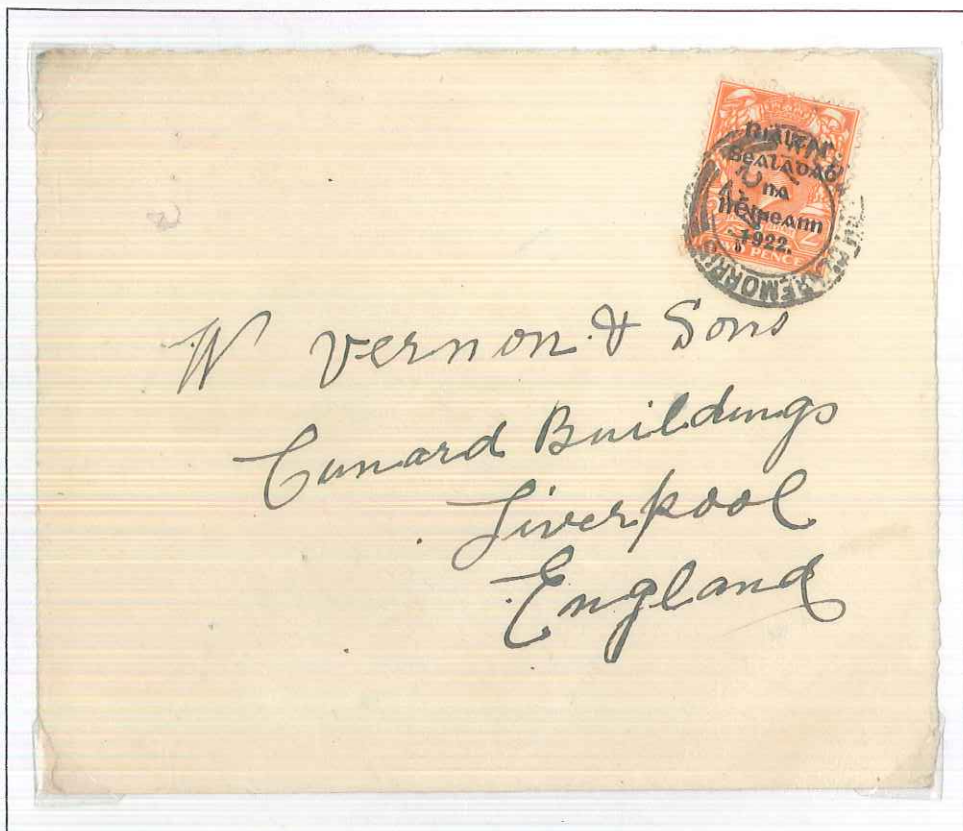 Rialtar
Sealadac
na
hÉireann
1922.
TWO PENCE
W Vernon & Sons
Cunard Buildings
Liverpool
England